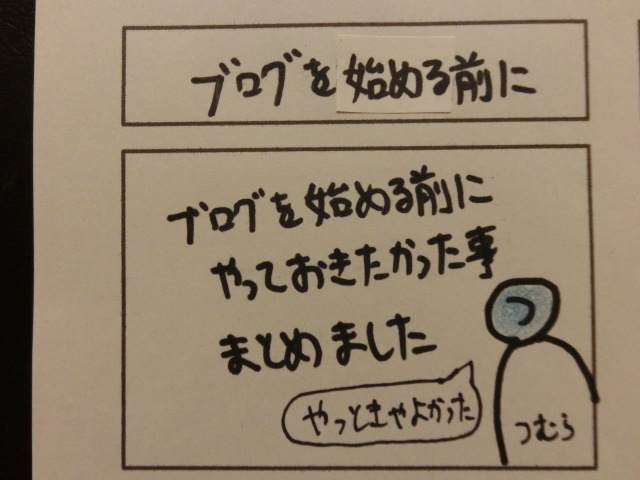 ブログを始める前に
ブログを始める前に
やっておきたかった事
まとめました
つ
やっときゃよかった
つむら